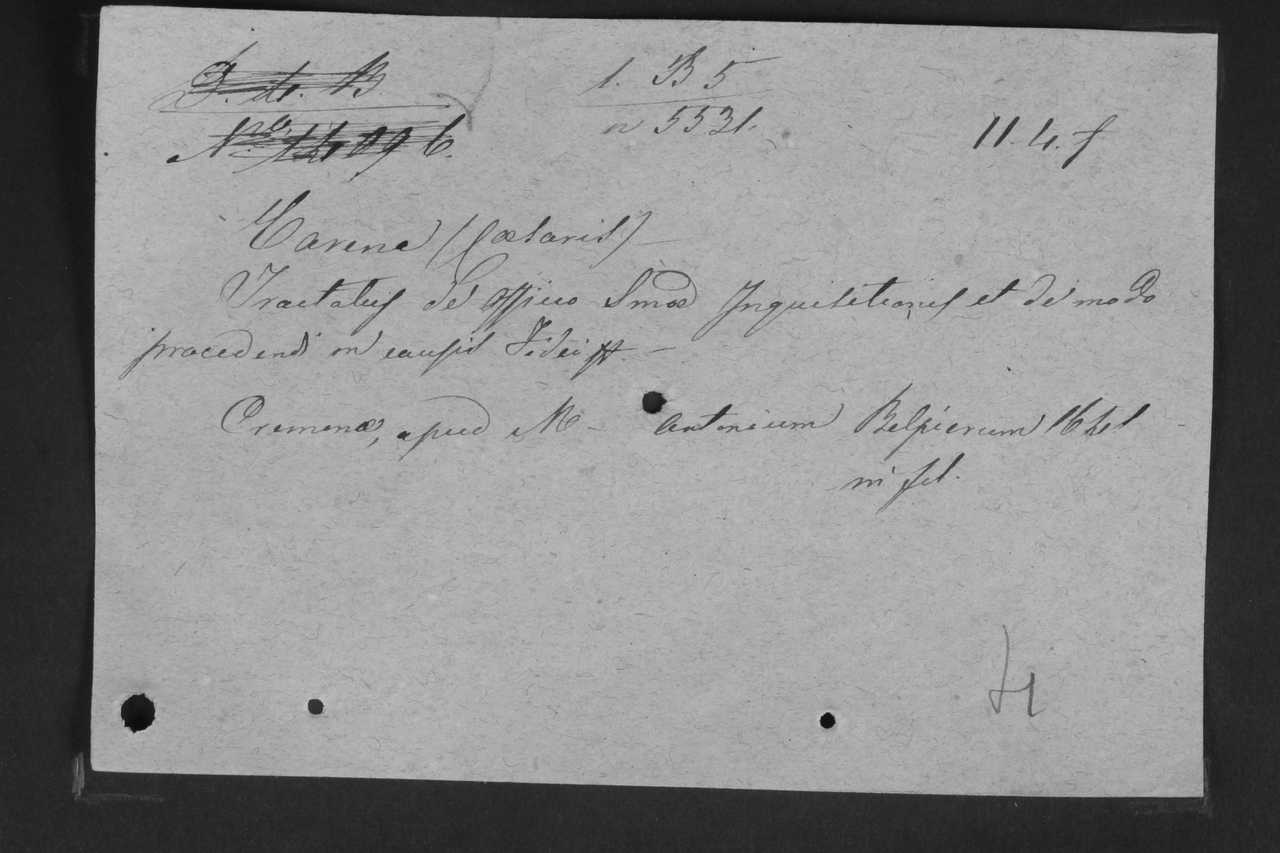 1. B 5
n 5531.
11. 4. f
Carena (Cæsaris)
Tractatus de Officio Smæ Inquisitionis et de modo
procedendi in causis Fidei
Cremonæ, apud M- Antonium Belpierum 1641
in fol.
4